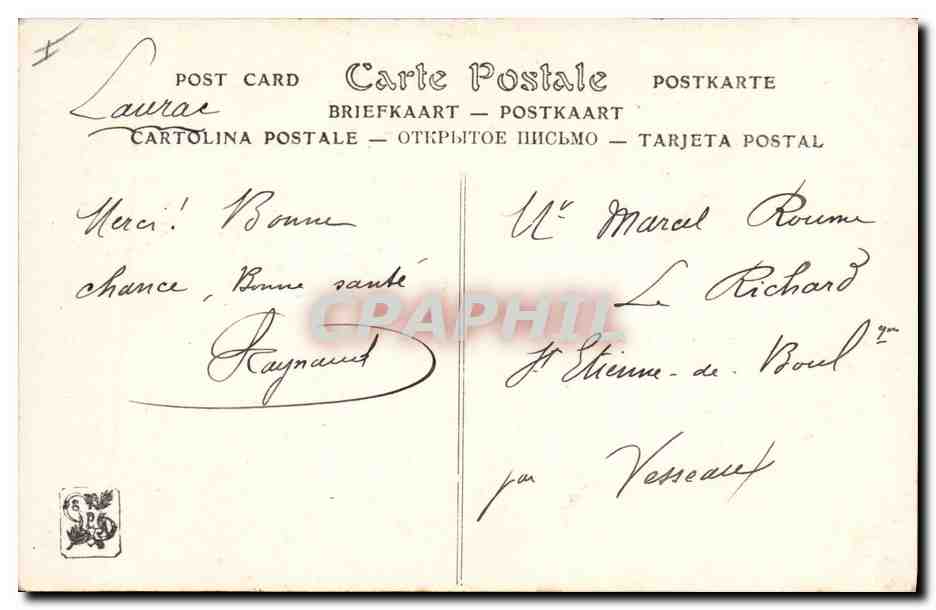 POST CARD Carte Postale POSTKARTE
Laurac
BRIEFKAART — POSTKAART
CARTOLINA POSTALE — ОТКРЫТОЕ ПИСЬМО — TARJETA POSTAL
Merci! Bonne
chance, Bonne santé
Raynaud
Mr Marcel Roume
Le Richard
St Etienne-de-Boulgne
par Vesseaux
CPRAPHIL